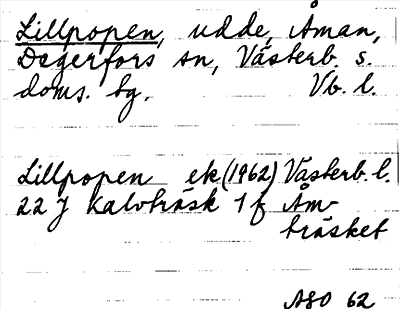 Lillpopen, udde, Åman,
Degerfors sn, Västerb. s.
doms. bg. Vb. l.
Lillpopen ek (1962) Västerb. l.
22 J Kalvträsk 1 f Åm-
träsket
ASO 62